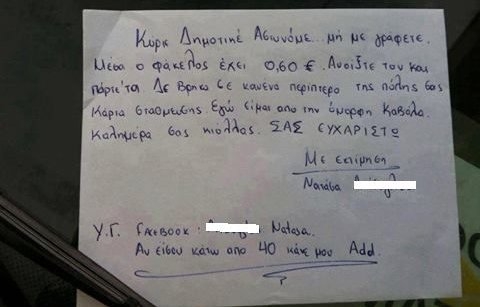 Κύριε Δημοτικέ Αστυνόμε... μή με γράφετε.
Μέσα ο φάκελος έχει 0,60 €. Ανοίξτε τον και
πάρτε τα. Δε βρήκα σε κανένα περίπτερο της πόλης σας
κάρτα στάθμευσης. Εγώ είμαι από την όμορφη Καβάλα.
Καλημέρα σας κιόλλας. ΣΑΣ ΕΥΧΑΡΙΣΤΩ
Με εκτίμηση
Νατάσα
Υ.Γ. FACEBOOK: Natasa.
Αν είσαι κάτω από 40 κάνε μου Add.